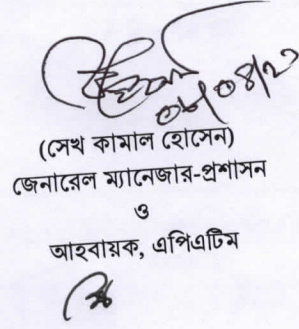 (সেখ কামাল হোসেন)
জেনারেল ম্যানেজার-প্রশাসন
ও
আহবায়ক, এপিএটিম